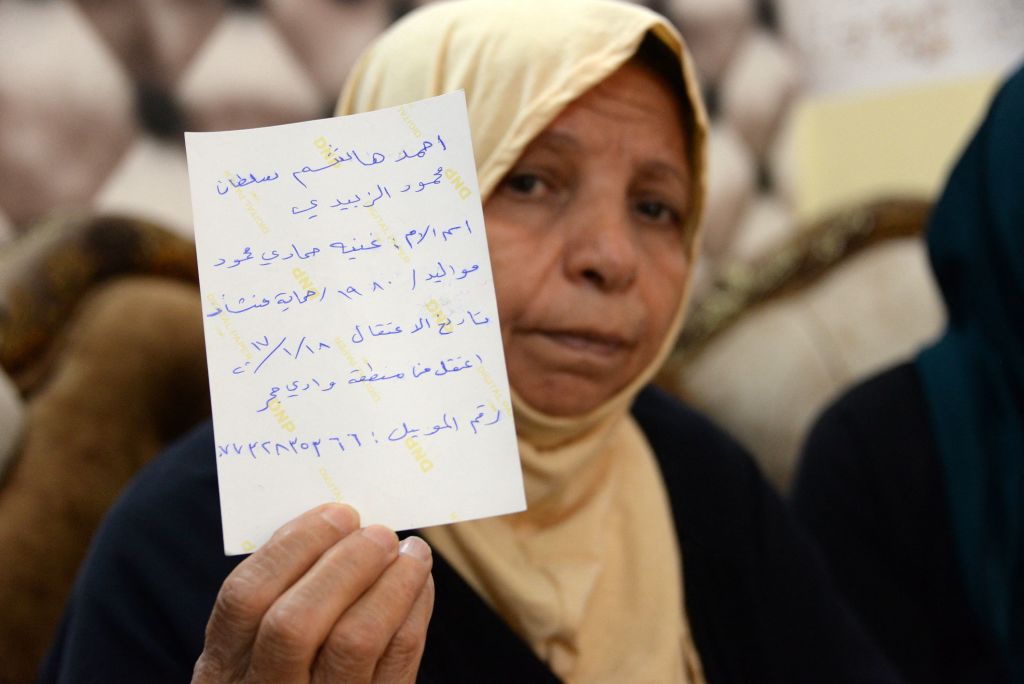 احمد هاشم سلطان
محمود الزبيدي
اسم الام : غنيه حمادي محمود
مواليد / ١٩٨٠ / حماية منشأت
تاريخ الاعتقال ١٧/١/١٨
اعتقل من منطقة وادي حجر
رقم الموبيل : ٧٧٣٢٨٣٥٣٦٦
DNP
DNP
DNP
DNP
DNP
DNP